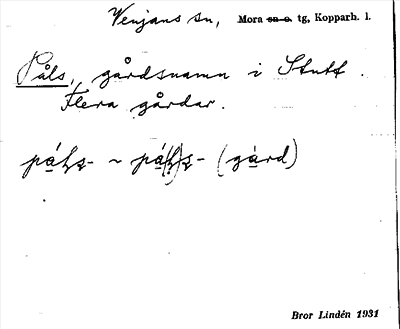 Venjans sn, Mora sn o. tg, Kopparh. l.
Påls, gårdsnamn i Stutt.
Flera gårdar.
(gård)
Bror Lindén 1931